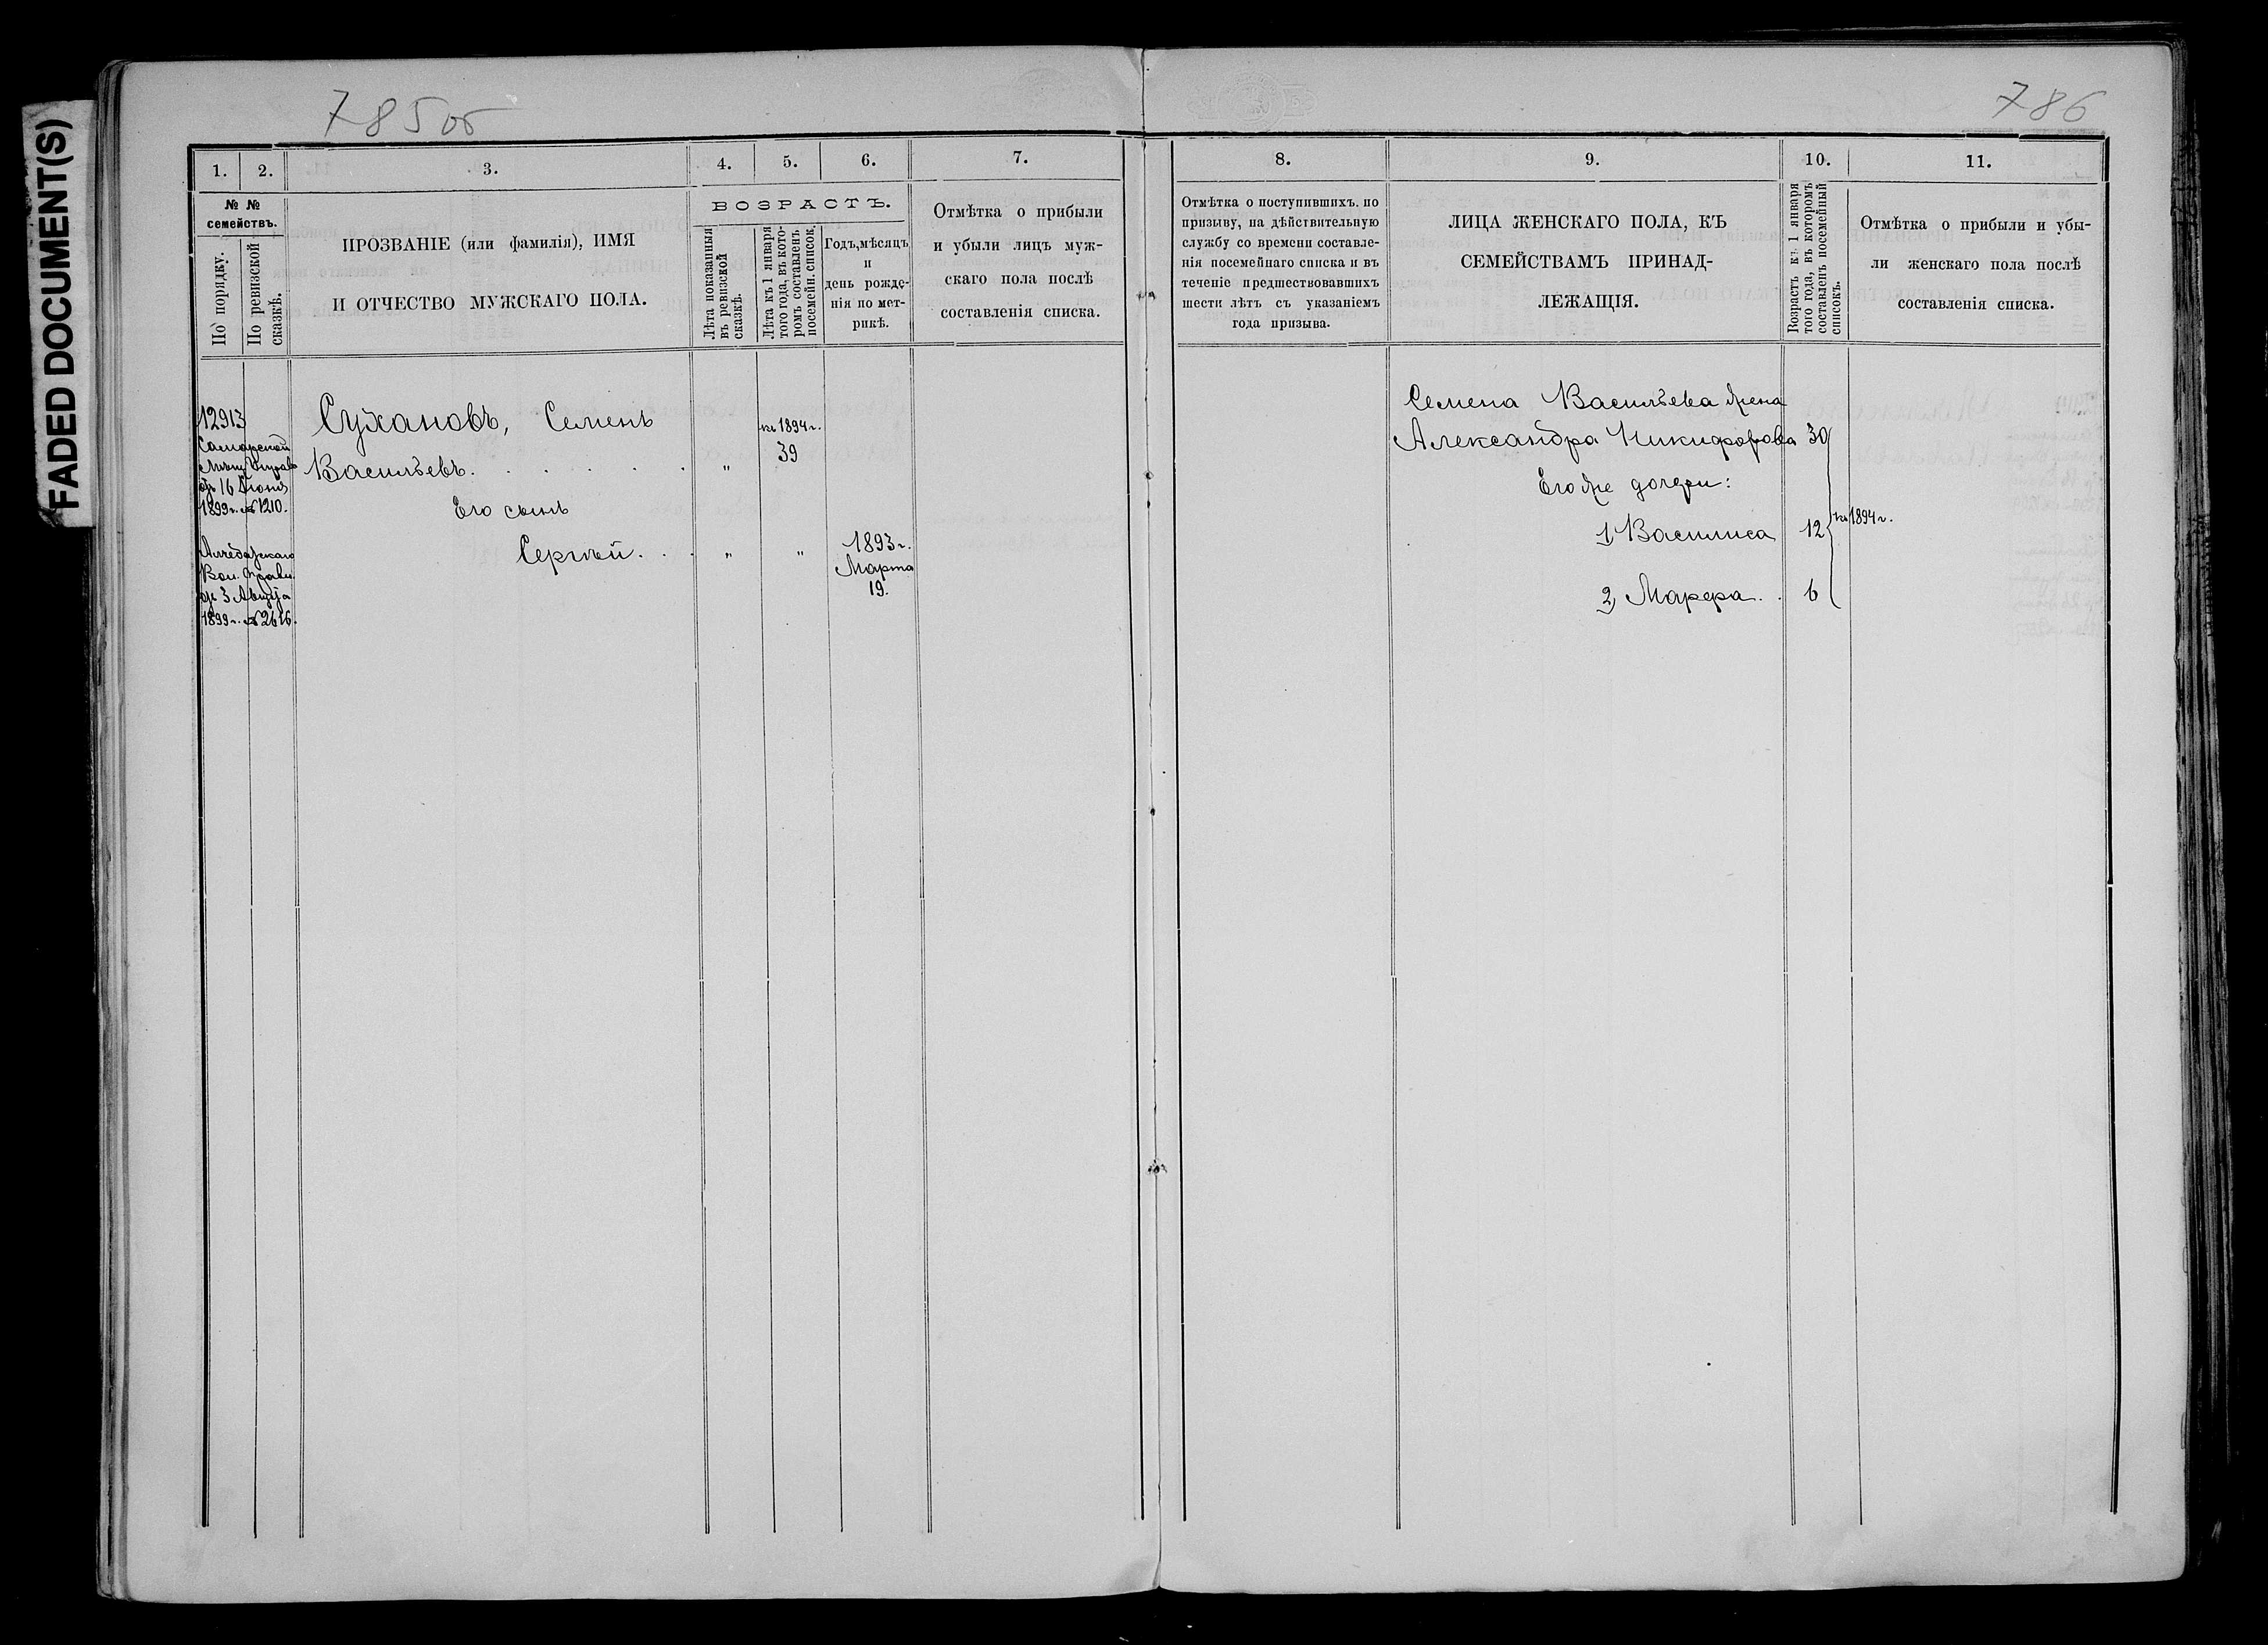 FADED DOCUMENT(S)
785 об
786
1.
2.
3.
4.
5.
6.
7.
№ №
семействъ.
По порядку.
По ревизской
сказкѣ.
ПРОЗВАНІЕ (или фамилія), ИМЯ
И ОТЧЕСТВО МУЖСКАГО ПОЛА.
ВОЗРАСТЪ.
Лѣта показанныя
въ ревизской
сказкѣ.
Лѣта къ 1 января
того года, въ кото-
ромъ составленъ
посемейн. список.
Годъ, мѣсяцъ
и
день рожде-
нія по мет-
рикѣ.
Отмѣтка о прибыли
и убыли лицъ муж-
скаго пола послѣ
составленія списка.
12913
Самарской
Мѣщ. Управы
отъ 16 Іюня
1899 г. № 1210.
Вол. Правл.
отъ 3 Августа
1899 г. № 2616.
Сухановъ, Семенъ
Васильевъ. . . . . . "
къ 1894 г.
39
Его сынъ
Сергѣй. . . " "
1893 г.
Марта
19.
8.
9.
10.
11.
Отмѣтка о поступившихъ. по
призыву, на дѣйствительную
службу со времени составле-
нія посемейнаго списка и въ
теченіе предшествовавшихъ
шести лѣтъ съ указаніемъ
года призыва.
ЛИЦА ЖЕНСКАГО ПОЛА, КЪ
СЕМЕЙСТВАМЪ ПРИНАД-
ЛЕЖАЩІЯ.
Возрастъ къ 1 января
того года, въ которомъ
составленъ посемейный
списокъ.
Отмѣтка о прибыли и убы-
ли женскаго пола послѣ
составленія списка.
Семена Васильева жена
Александра Никифорова 30
Его же дочери:
1) Василиса 12
къ 1894 г.
2) Марфа. . 6